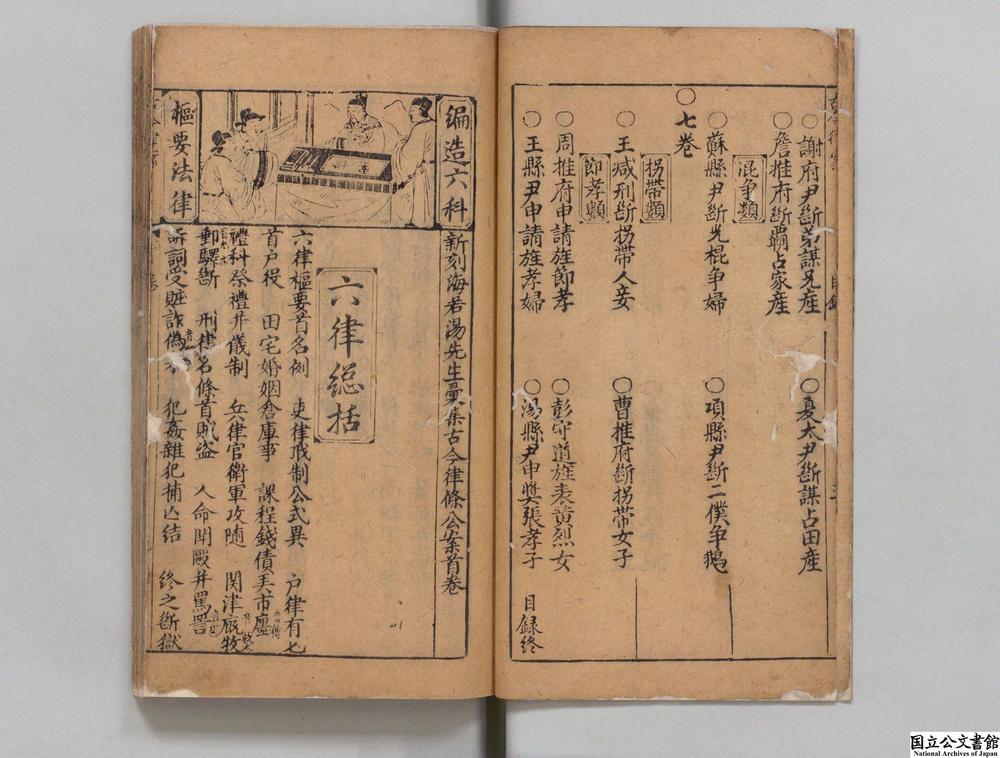 ○謝府尹斷弟謀兄產
○夏太尹斷謀占田產
○詹推府斷霸占家產
混爭類
○蘇縣尹斷光棍爭婦
○項縣尹斷二僕爭鵝
○七卷
拐帶類
○王减刑斷拐帶人妾
○曹推府斷拐帶女子
節孝類
○周推府申請旌節孝
○彭守道旌表黄烈女
○王縣尹申請旌孝婦
○馮縣尹申奬張孝子
目録終
編造六科
樞要法律
新刻海若湯先生彚集古今律條公案首卷
六律總括
六律樞要首名例 吏律戒制公式異 户律有七
首户役 田宅婚姻倉庫事 課程錢債美市廛
禮科祭禮并儀制 兵律官衛軍攻隨 関津廐牧
郵驛斷 刑律名條首賊盗 人命閗毆并罵詈
訴詞受賍詐偽 犯姦雜犯捕亾结 終之斷獄
国立公文書館
National Archives of Japan